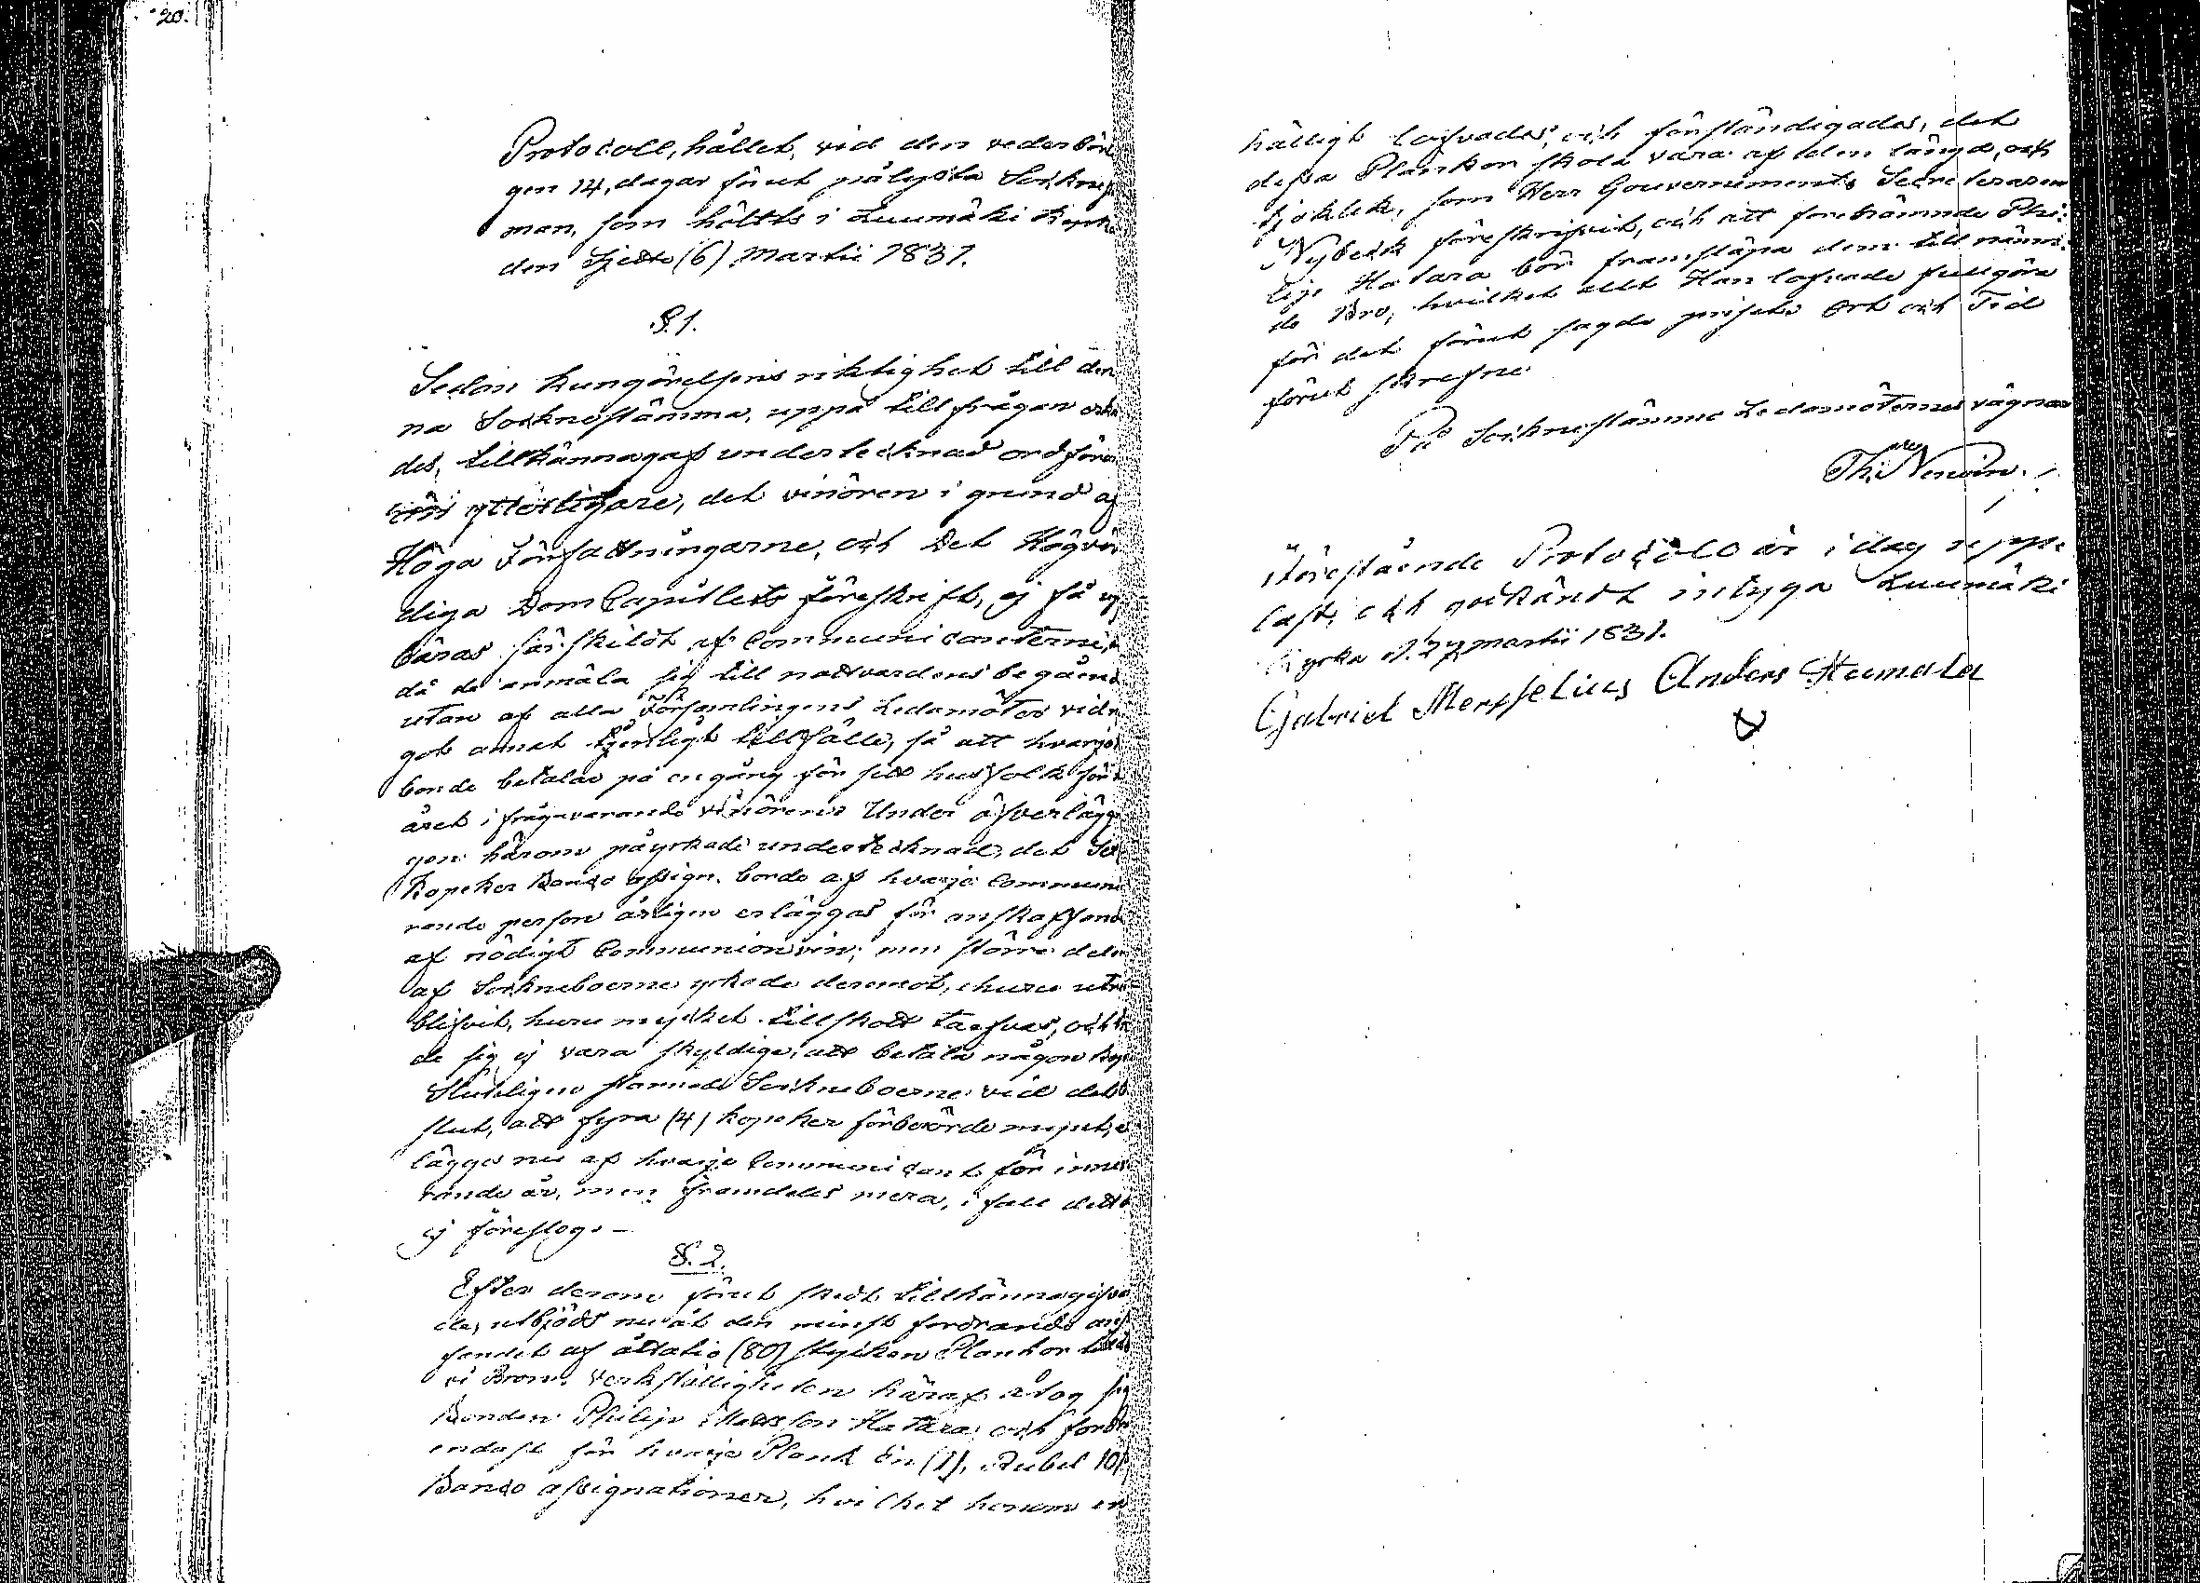 20.
Protocoll, hållet, vid den vederbörl
gen 14, dagar förut pålysta Sockne
man, som höltts i Luumäki Kyrka
den Sjette (6) Martii 1831.
§. 1.
Sedan kungörelsens riktighet till den
na Socknestämma, uppå tillfrågan erkän
des, tillkännagaf undertecknad ordföran
ytterligare, det vinören i grund af
Höga Författningarne, och Det Högvör
diga DomCapitlets föreskrift, ej få upp
bäras särskildt af Communicanterne,
då de anmäla sig till nattvardens begående
utan af alla Församlingens Ledamöter vid nå
got annat tjenligt tillfälle, så att hvarje
bonde betalar på en gång för sitt husfolk för
året ifrågavarande vinören. Under öfverlägg
gen härom påyrkade undertecknad, det Sex
Kopeker Banco assign. borde af hvarje Communi
rande person årligen erläggas för anskaffande
af nödigt Communionvin; men större delen
af Sockneboerne yrkade deremot, huru
blifvit, huru mycket tillskott tarfvas, och
de sig ej vara skyldige, att betala någon
Slutligen stannade Sockneboerne vid det
slut, att fyra (4) kopeker förberörde mynt, er
lägges nu af hvarje Communicant för inne
rande år, men framdeles mera, i fall detta
ej föreslog. —
§. 2.
Efter derom förut skedt tillkännagifvan
de, utbjöds nu åt den minst fordrande
fandet af åttatio (80) stycken Plankor till
Bron. Verkställigheten häraf åtog sig
Bonden Philip Matsson Hatara, och fordra
endast för hvarje Plank En (1), Rubel 10
Banco assignationer, hvilket honom en
hälligt lofvades, och förständigades, det
dessa Plankor skola vara af den längd, och
tjoklek, som Herr Gouvernements Secreteraren
Nybeck föreskrifvit, och att forenämnde Phi-
lip Hatara bör framsläpa dem till nämn-
de Bro, hvilket allt Han lofvade fullgöra
för det förut sagde priset. Ort och Tid
förut skrefne
På Socknestämmo Ledamöternes vägnar
Th: Nenon.
Förestående Protocoll är i dag upp-
läst, och godkändt intyga Luumäki
Kyrka d. 27 martii 1831.
Gabriel Anders